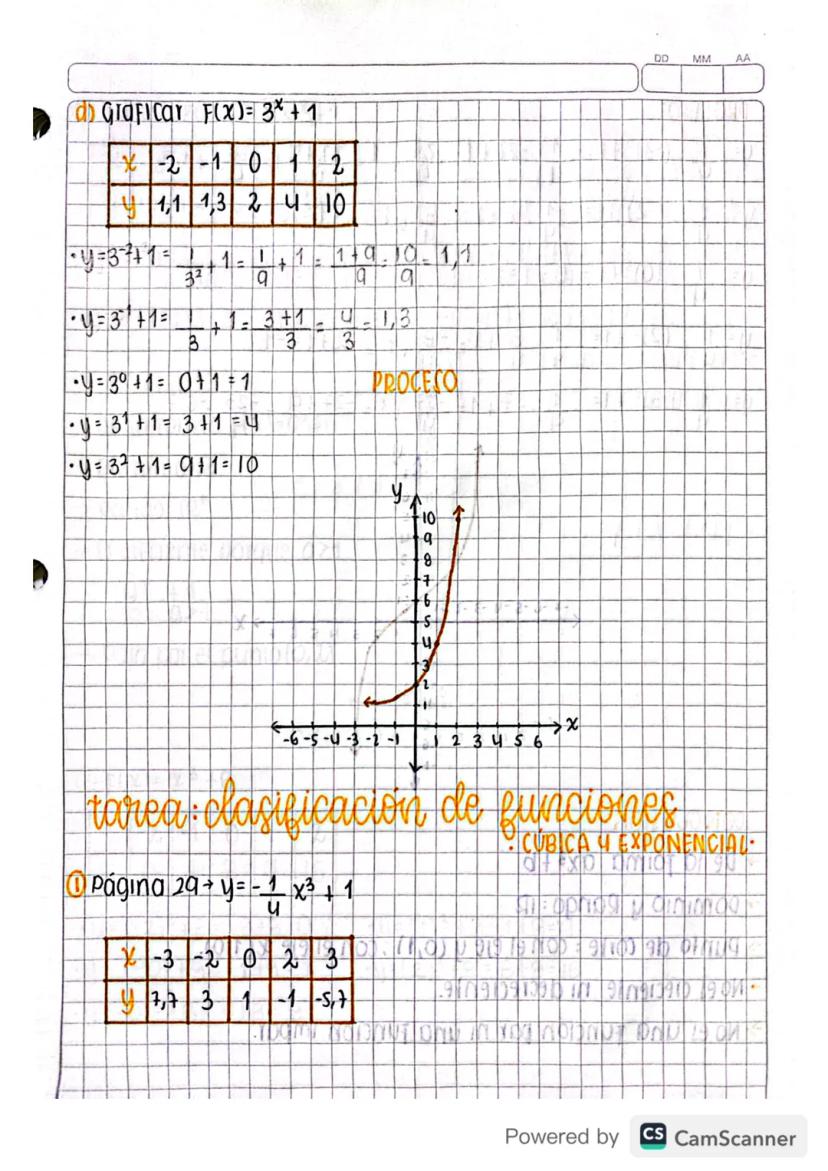 DD MM AA
d) Graficar F(x)= 3ˣ + 1
x -2 -1 0 1 2
y 1,1 1,3 2 4 10
• y=3⁻²+1 = 1/3² + 1 = 1/9 + 1 = 1+9/9 = 10/9 = 1,1
• y=3⁻¹+1= 1/3 + 1 = 3+1/3 = 4/3 = 1,3
• y= 3⁰+1= 0+1=1 PROCESO
• y= 3¹+1= 3+1=4
• y= 3²+1= 9+1=10
y
10
9
8
7
6
5
4
3
2
1
-6 -5 -4 -3 -2 -1 1 2 3 4 5 6 x
tarea: clasificación de funciones
• CÚBICA Y EXPONENCIAL •
① Página 29 → y= -1/4 x³ + 1
x -3 -2 0 2 3
y 7,7 3 1 -1 -5,7
Powered by CS CamScanner